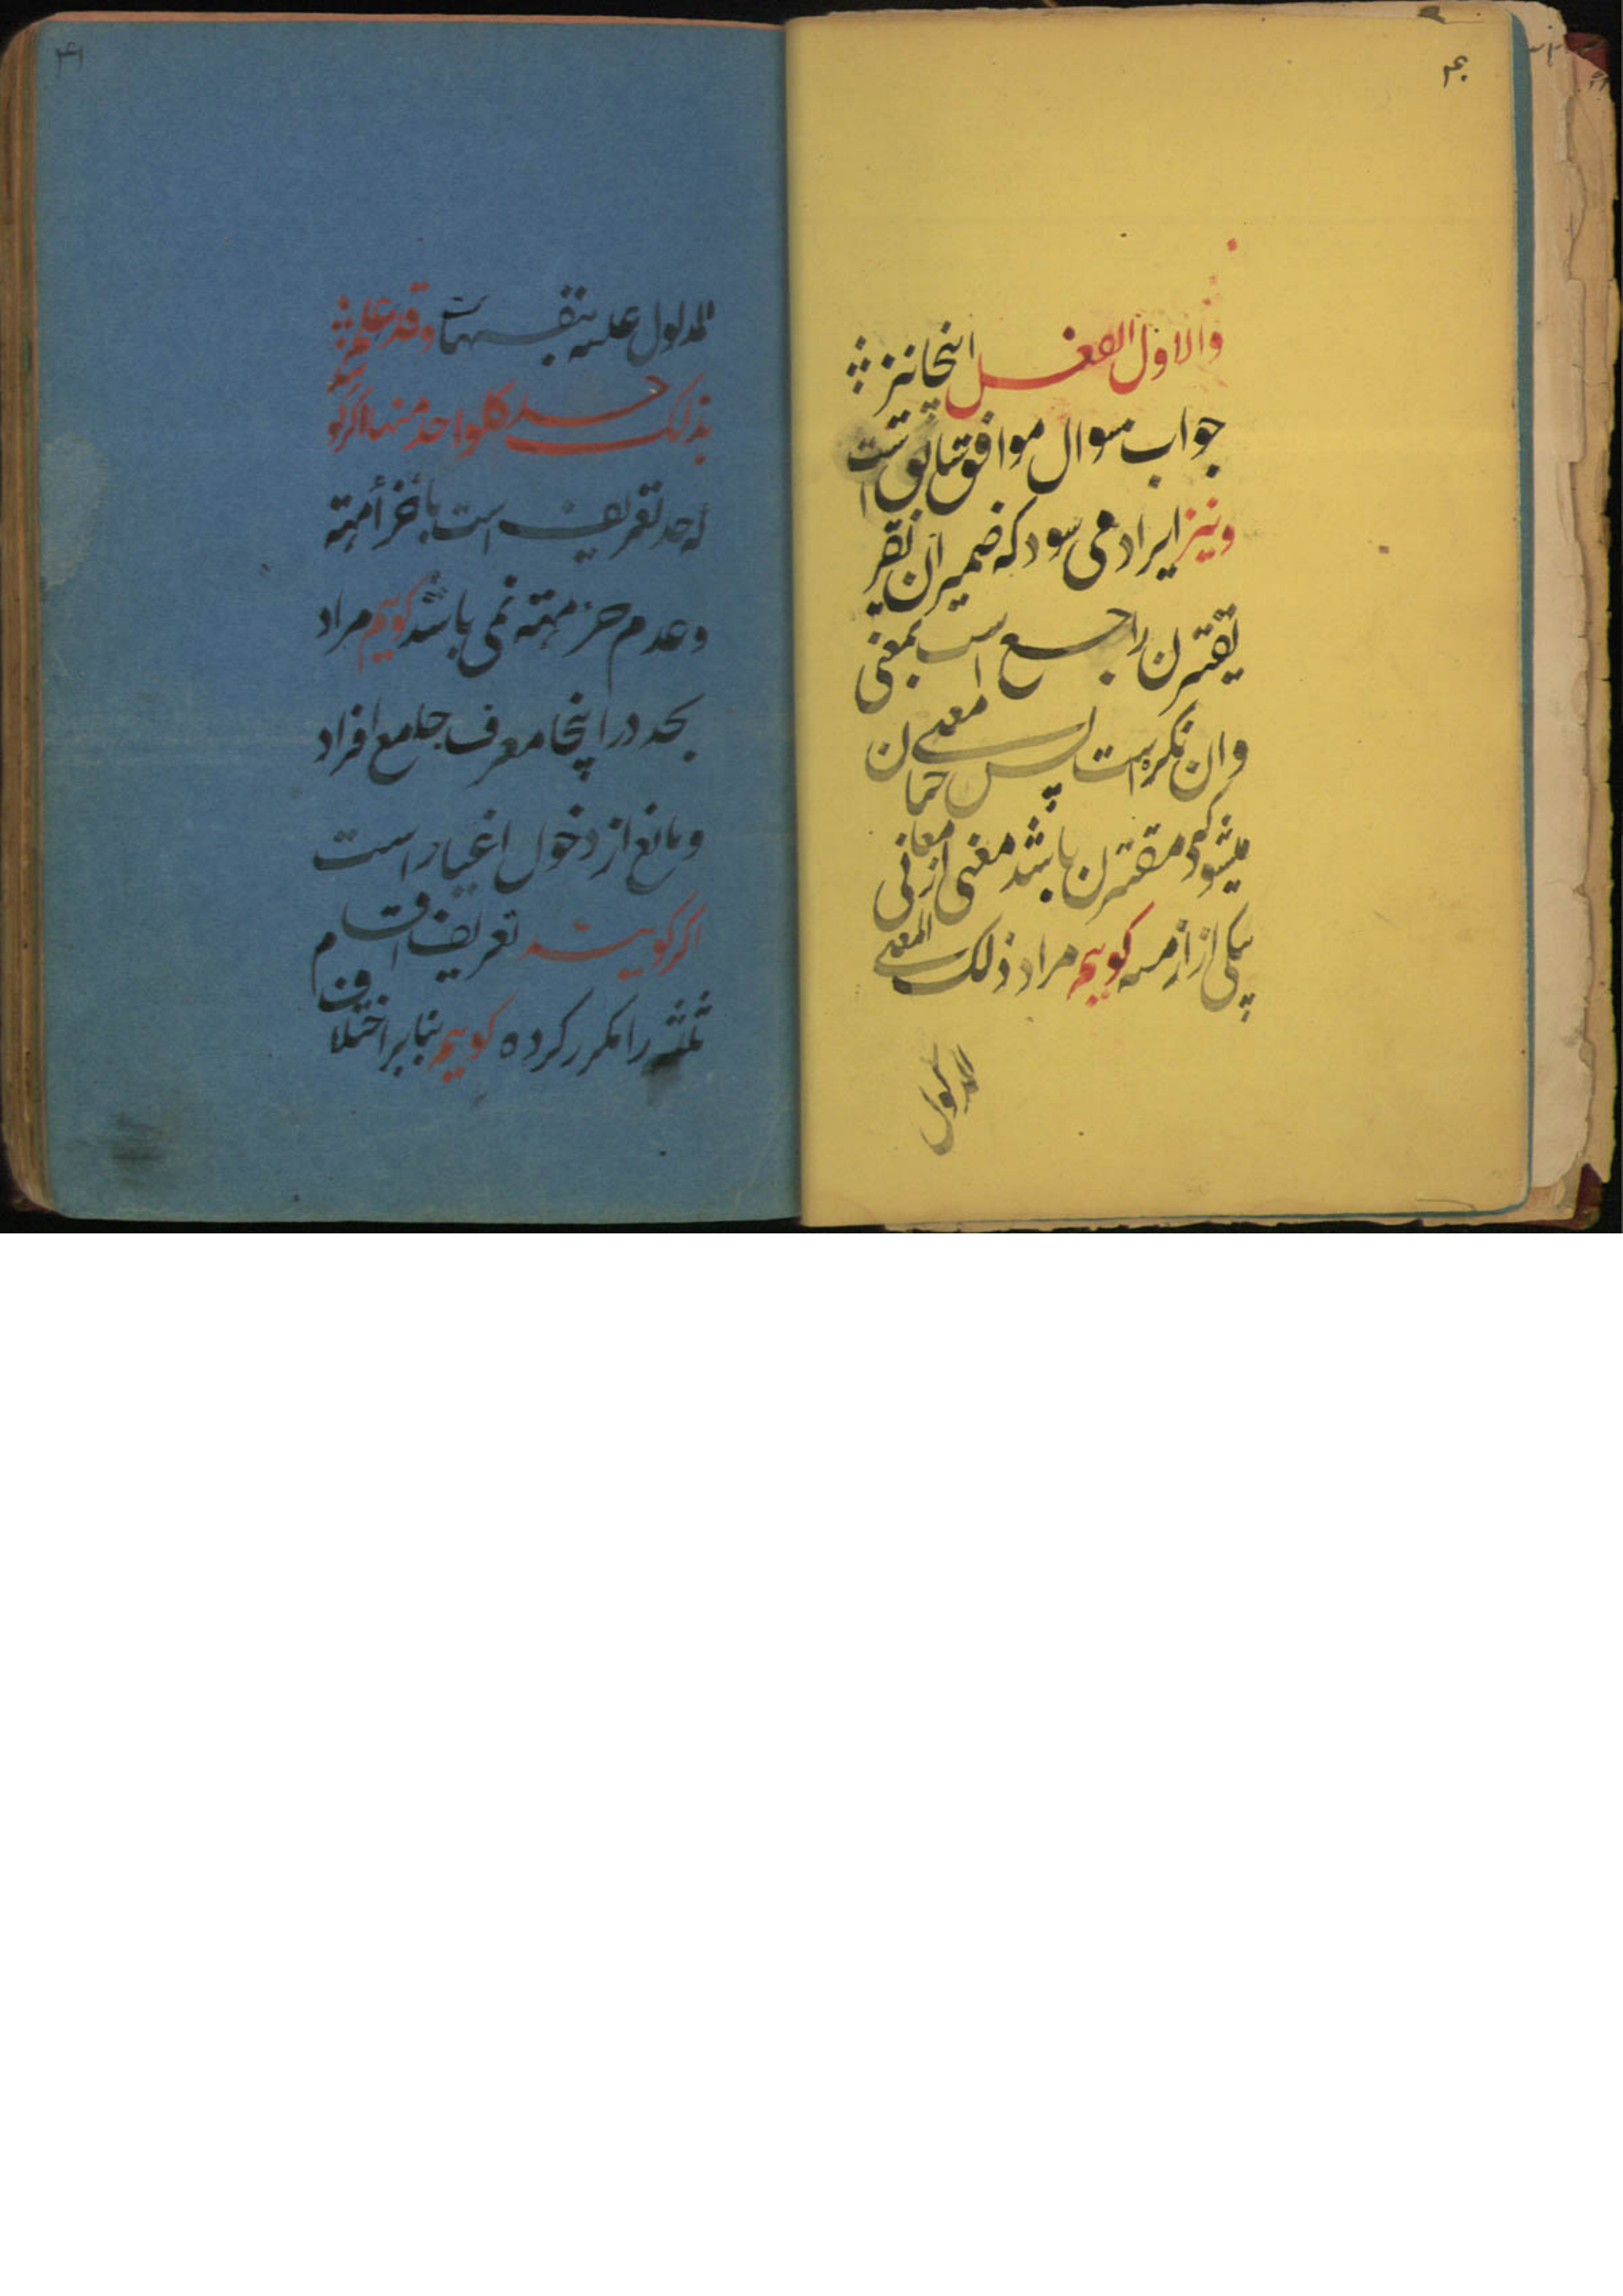 ۴۰
والاول الفعل اینجا نیز
جواب سوال موافق سابق است
ونیز ایراد می سود که ضمیر ان یقتر
یقترن راجع است بمعنی
وان نکره است پس معنی چنان
میشود که مقترن باشد معنی از معانی
یکی از ازمنه کویم مراد ذلک المعنی
المدلول
۴۱
المدلول علیه بنفسها است وقد علم
بذلک حد کلواحد منها اکر کو
که حد تعریف است باجزأ مهیته
وعدم جز مهیته نمی باشد کویم مراد
بحد در اینجا معرف جامع افراد
ومانع از دخول اغیار است
اکر کویند تعریف اقسام
ثلثه را مکرر کرده کویم بنابر اختلاف